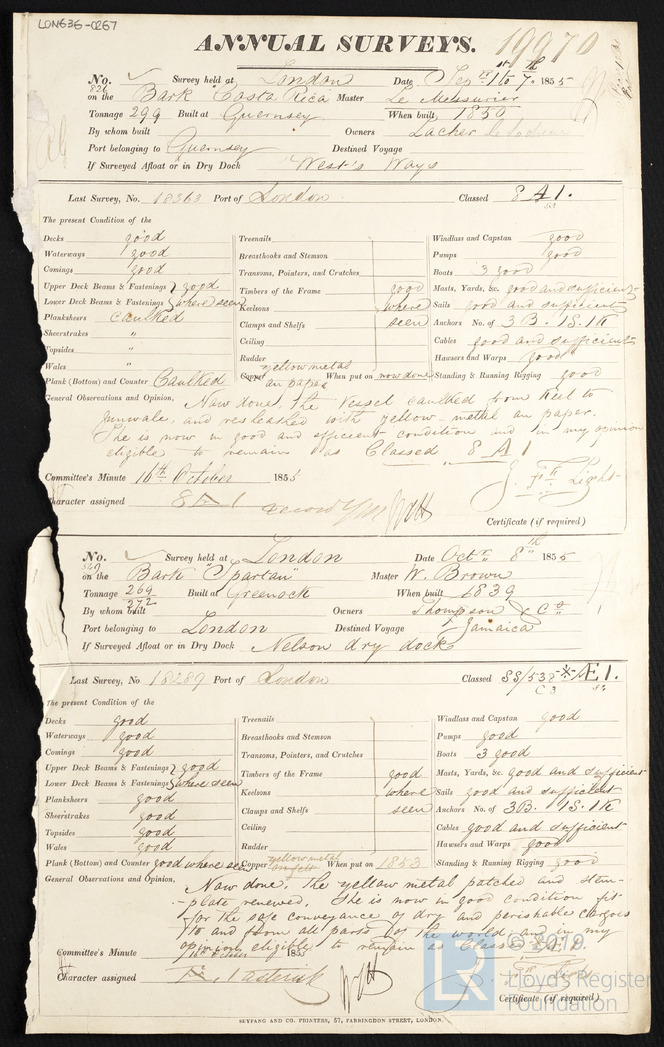 LON636-0267
ANNUAL SURVEYS. 19970
No. 826 Survey held at London Date Sep 1st to 7th 1855
on the Bark "Costa Rica Master Le Messurier
Tonnage 299 Built at Guernsey When built 1850
By whom built Owners
Port belonging to Guernsey Destined Voyage
If Surveyed Afloat or in Dry Dock West's Ways
Last Survey, No. 18363 Port of London Classed 8 A 1.
The present Condition of the
Decks good Treenails Windlass and Capstan good
Waterways good Breasthooks and Stemson Pumps good
Comings good Transoms, Pointers, and Crutches Boats 3 good
Upper Deck Beams & Fastenings } good Timbers of the Frame good Masts, Yards, &c. good and sufficient
Lower Deck Beams & Fastenings } where seen Keelsons where Sails good and sufficient
Planksheers Caulked Clamps and Shelfs seen Anchors No. of 3 B. 1 S. 1 K
Sheerstrakes " Ceiling Cables good and sufficient
Topsides " Rudder Hawsers and Warps good
Wales "
Plank (Bottom) and Counter Caulked Copper yellow metal on paper When put on now done Standing & Running Rigging good
General Observations and Opinion, Now done, the Vessel caulked from Keel to
gunwale, and resheathed with yellow-metal on paper.
She is now in good and efficient condition and in my opinion
eligible to remain as Classed 8 A 1
Committee's Minute 16th October 1855
Character assigned 8 A 1
Certificate (if required)
No. 829 Survey held at London Date Octr 8th 1855
on the Bark "Spartan" Master W. Brown
Tonnage 269 272 Built at Greenock When built 1839
By whom built Owners Thompson & Co
Port belonging to London Destined Voyage Jamaica
If Surveyed Afloat or in Dry Dock Nelson dry dock
Last Survey, No 18289 Port of London Classed SS/538 -*- Æ 1.
The present Condition of the
Decks good Treenails Windlass and Capstan good
Waterways good Breasthooks and Stemson Pumps good
Comings good Transoms, Pointers, and Crutches Boats 3 good
Upper Deck Beams & Fastenings } good Timbers of the Frame good Masts, Yards, &c. good and sufficient
Lower Deck Beams & Fastenings } where seen Keelsons where Sails good and sufficient
Planksheers good Clamps and Shelfs seen Anchors No. of 3 B. 1 S. 1 K
Sheerstrakes good Ceiling Cables good and sufficient
Topsides good Rudder Hawsers and Warps good
Wales good
Plank (Bottom) and Counter good where seen Copper yellow metal on felt When put on 1853 Standing & Running Rigging good
General Observations and Opinion, Now done, The yellow metal patched and stem-
-plate renewed. She is now in good condition fit
for the safe conveyance of dry and perishable cargoes
to and from all parts of the world, and in my
opinion eligible to remain as Classed
Committee's Minute 185
Character assigned Asterisk
Certificate (if required)
© 2019
LR Lloyd's Register
Foundation
SEYFANG AND CO. PRINTERS, 57, FARRINGDON STREET, LONDON.